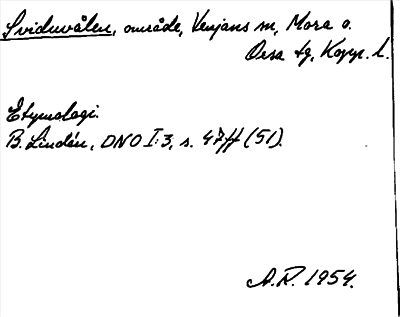 Sviduvålen, område, Venjans sn, Mora o.
Orsa tg, Kopp. l.
Etymologi.
B. Lindén, DNO I:3, s. 47ff (51).
A.R. 1954.